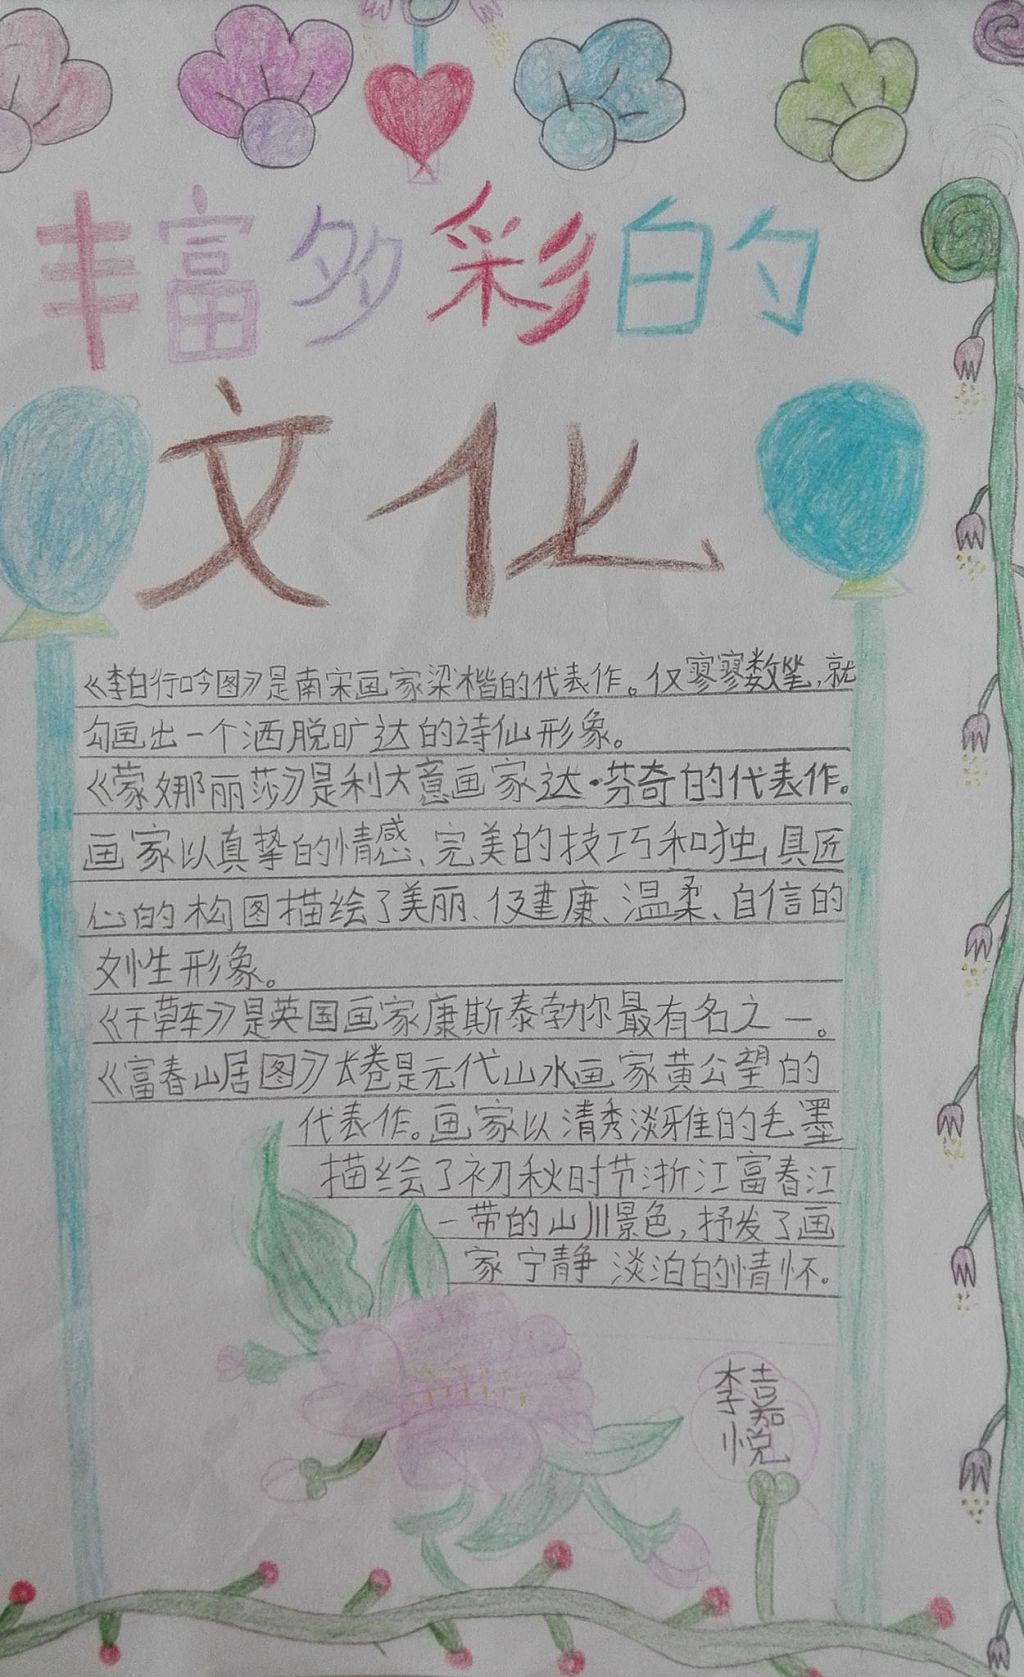 丰富多彩的
文化
《李白行吟图》是南宋画家梁楷的代表作。仅寥寥数笔,就
勾画出一个洒脱旷达的诗仙形象。
《蒙娜丽莎》是利大意画家达·芬奇的代表作。
画家以真挚的情感、完美的技巧和独具匠
心的构图描绘了美丽、健康、温柔、自信的
女性形象。
《干草车》是英国画家康斯泰勃尔最有名之一。
《富春山居图》长卷是元代山水画家黄公望的
代表作。画家以清秀淡雅的毛墨
描绘了初秋时节浙江富春江
一带的山川景色,抒发了画
家宁静淡泊的情怀。
李嘉
悦